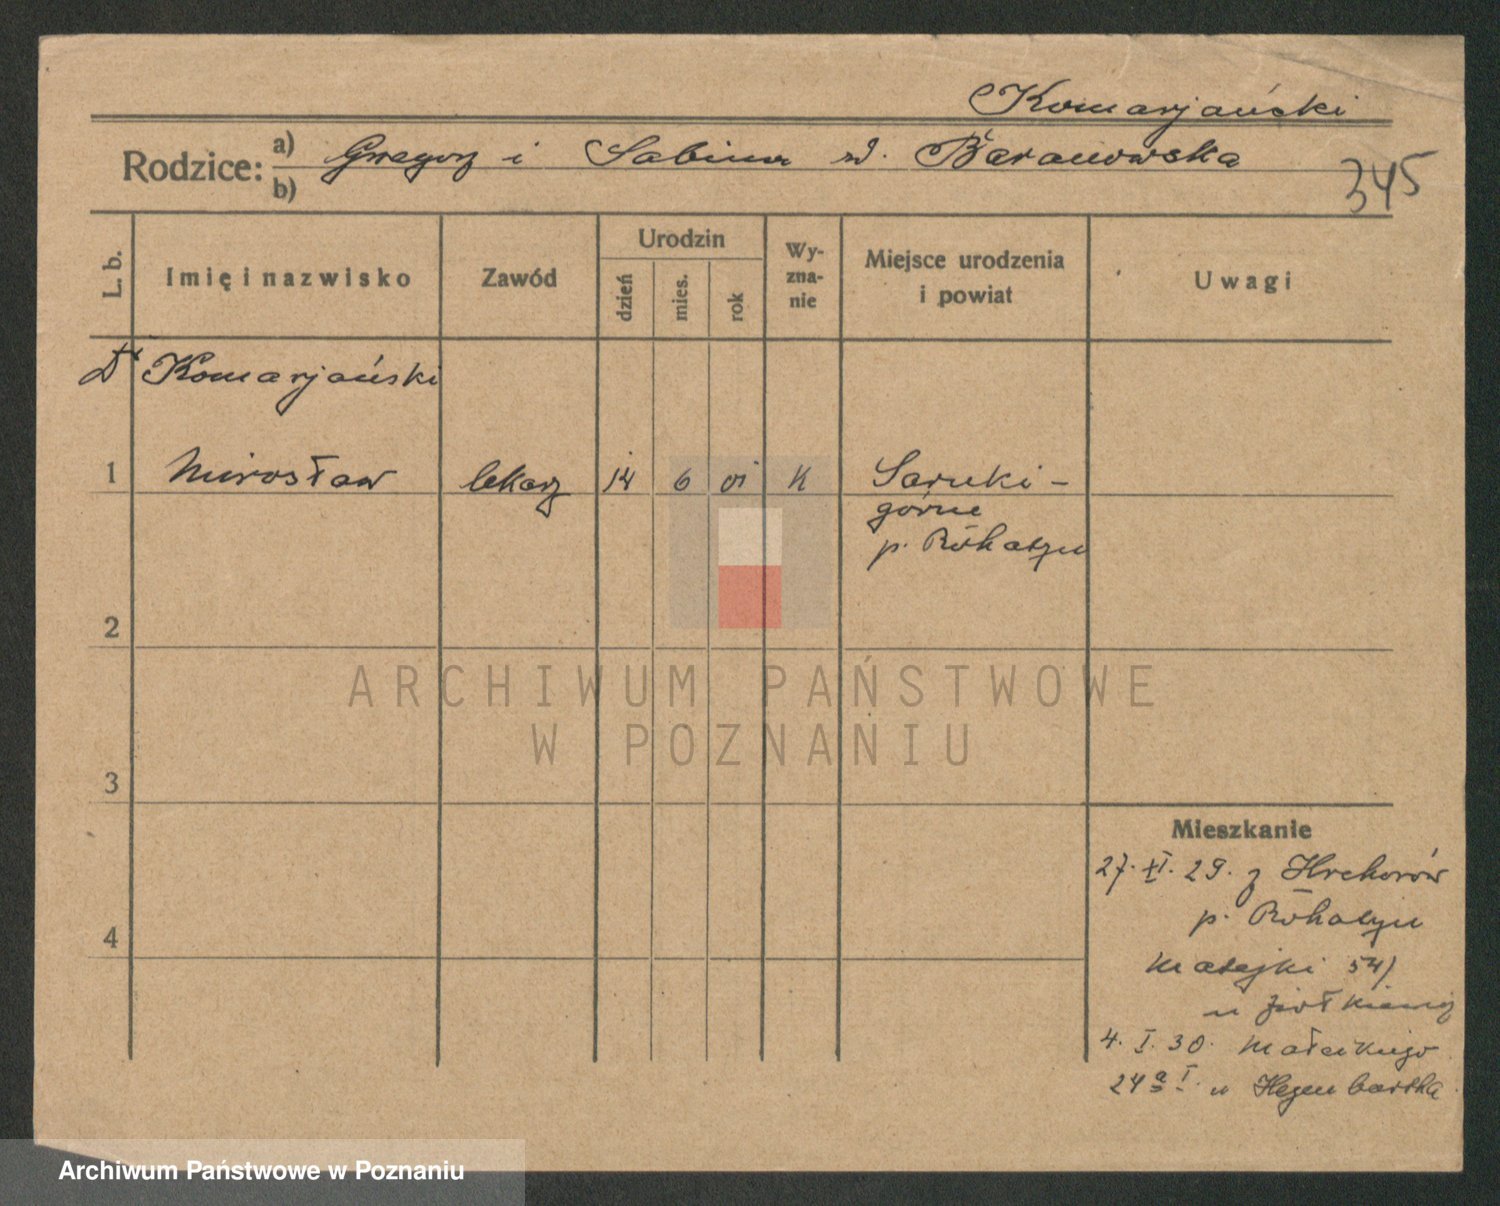 Komarjański
Rodzice: a) Gregorz i Sabina z d. Baranowska
b)
345
L. b.
Imię i nazwisko
Zawód
Urodzin
dzień
mies.
rok
Wy-
zna-
nie
Miejsce urodzenia
i powiat
Uwagi
Dr Komarjański
1 Mirosław lekarz 14 6 01 K Sarnki -
górne
p. Rohatyn
2
3
4
ARCHIWUM PAŃSTWOWE
W POZNANIU
Mieszkanie
27. XI. 29. z Hrehorów
p. Rohatyn
Matejki 54)
u
4. I. 30. Małeckiego
24a I. u Hegenbartha
Archiwum Państwowe w Poznaniu